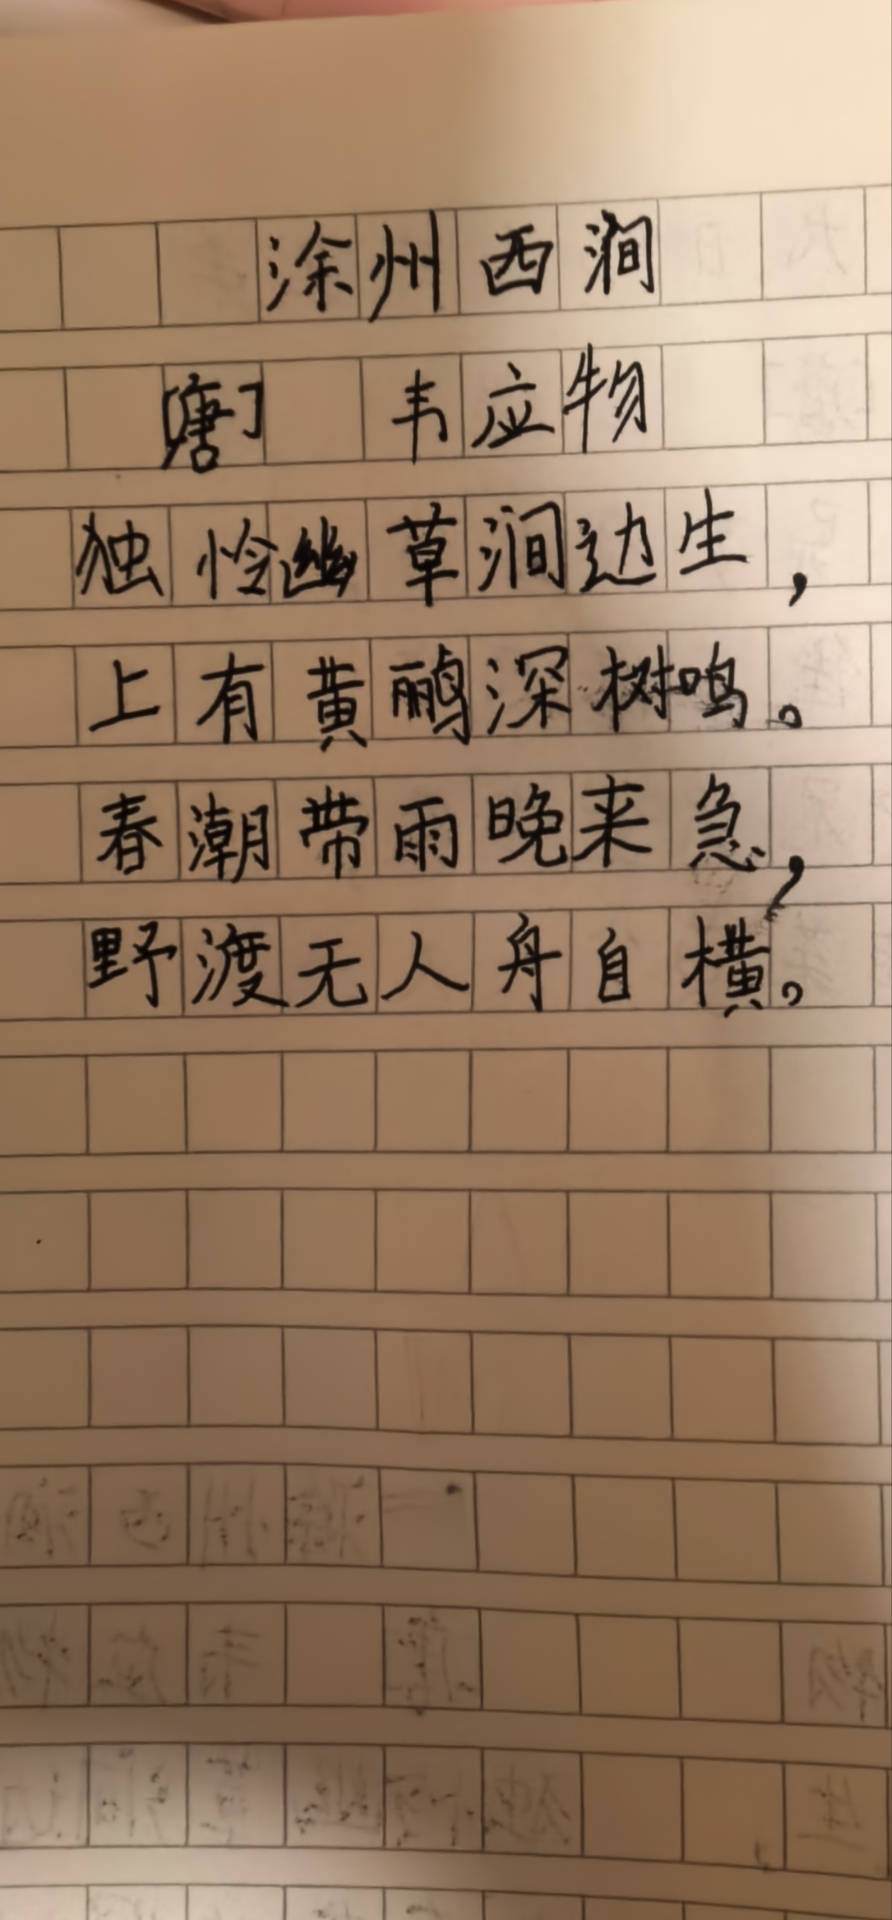 涂州西涧
[唐] 韦应物
独怜幽草涧边生，
上有黄鹂深树鸣。
春潮带雨晚来急，
野渡无人舟自横。